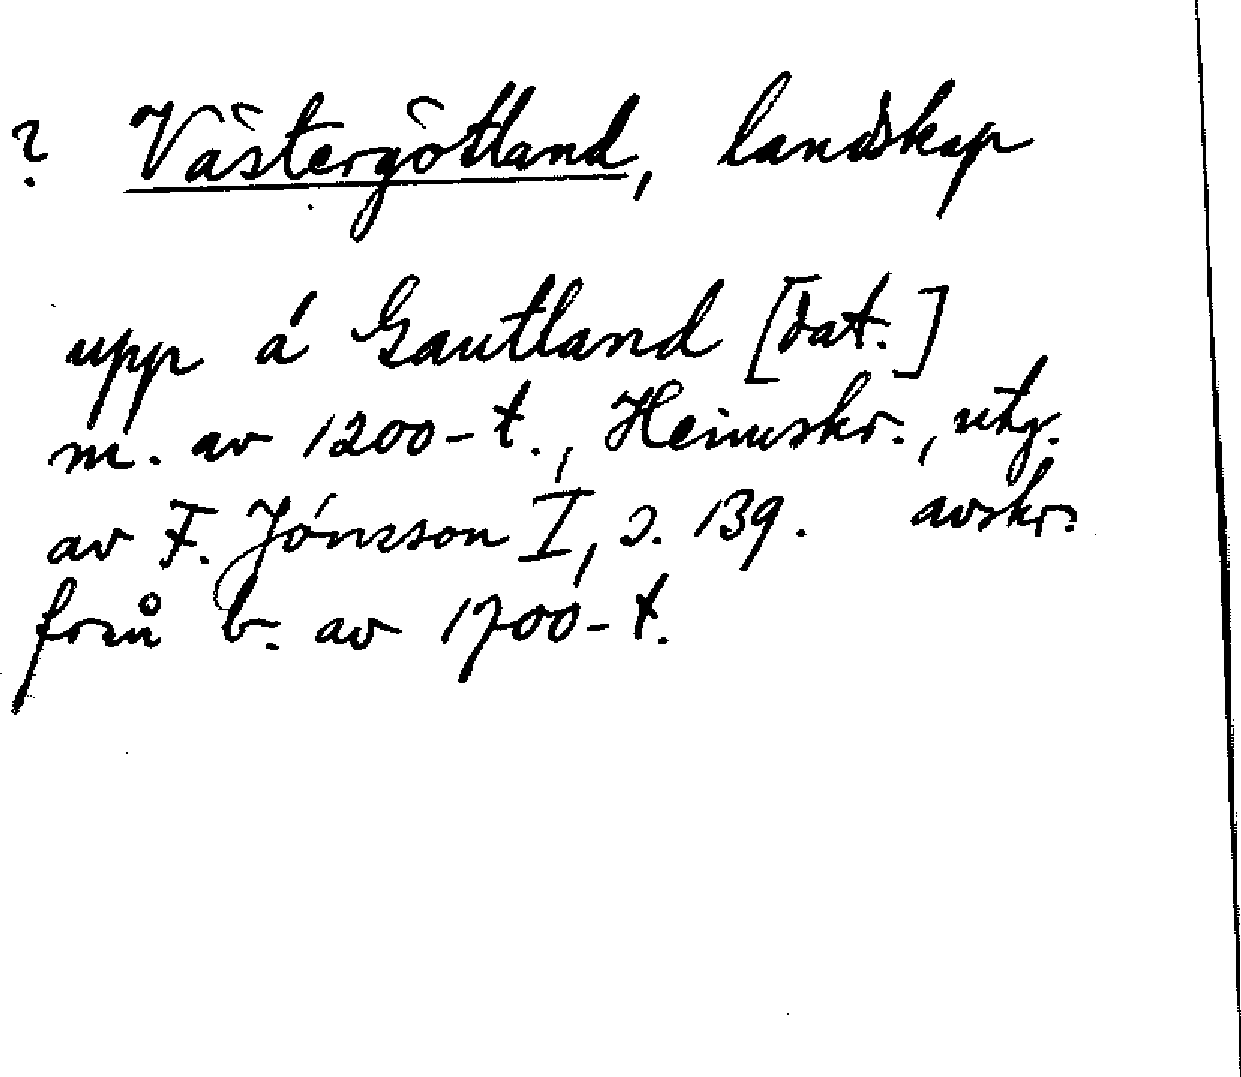 ? Västergötland, landskap
upp á Gautland [dat.]
m. av 1200-t., Heimskr., utg.
av F. Jónsson I, s. 139. avskr.
från b. av 1700-t.